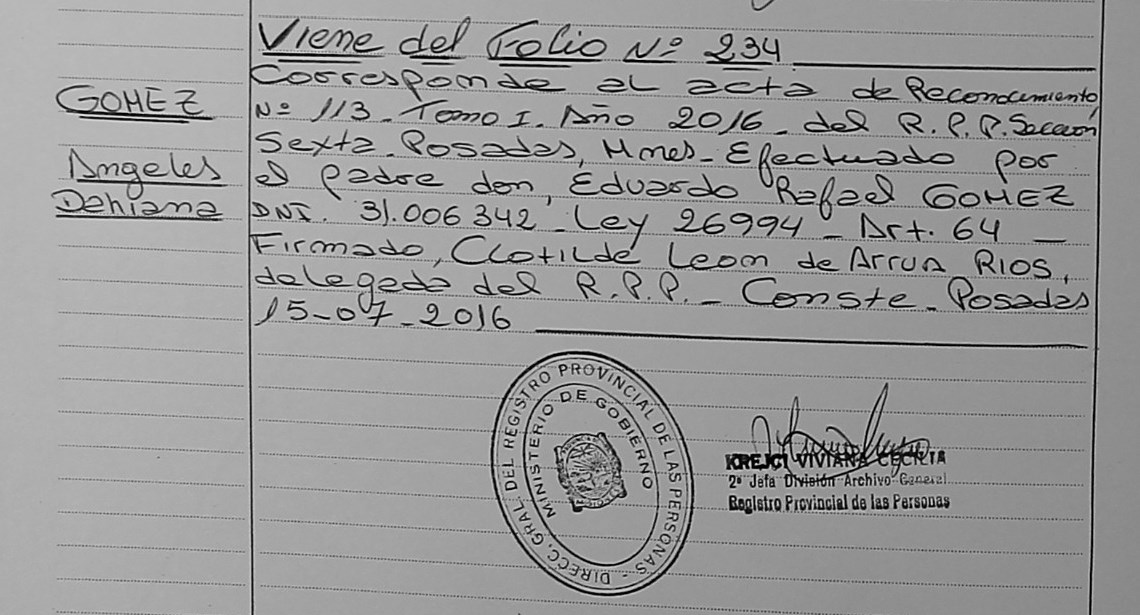 GOMEZ
Angeles
Dahiana
Viene del Folio Nº 234
Corresponde al acta de Reconocimiento
Nº 113_ Tomo I. Año 2016_ del R.P.P. Sección
Sexta_ Posadas, Mnes_ Efectuado por
el padre don, Eduardo Rafael GOMEZ
DNI. 31.006342_ Ley 26994_ Art. 64_
Firmado, Clotilde Leon de Arrua RIOS,
delegada del R.P.P._ Conste_ Posadas
15-07-2016
DIRECC. GRAL DEL REGISTRO PROVINCIAL DE LAS PERSONAS -
MINISTERIO DE GOBIERNO
KREJCI VIVIANA CECILIA
2º Jefa División Archivo General
Registro Provincial de las Personas